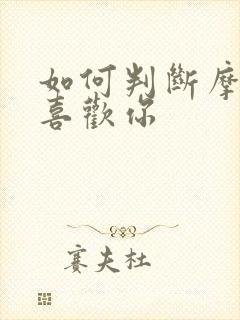 如何判斷摩
喜歡你
賽夫杜